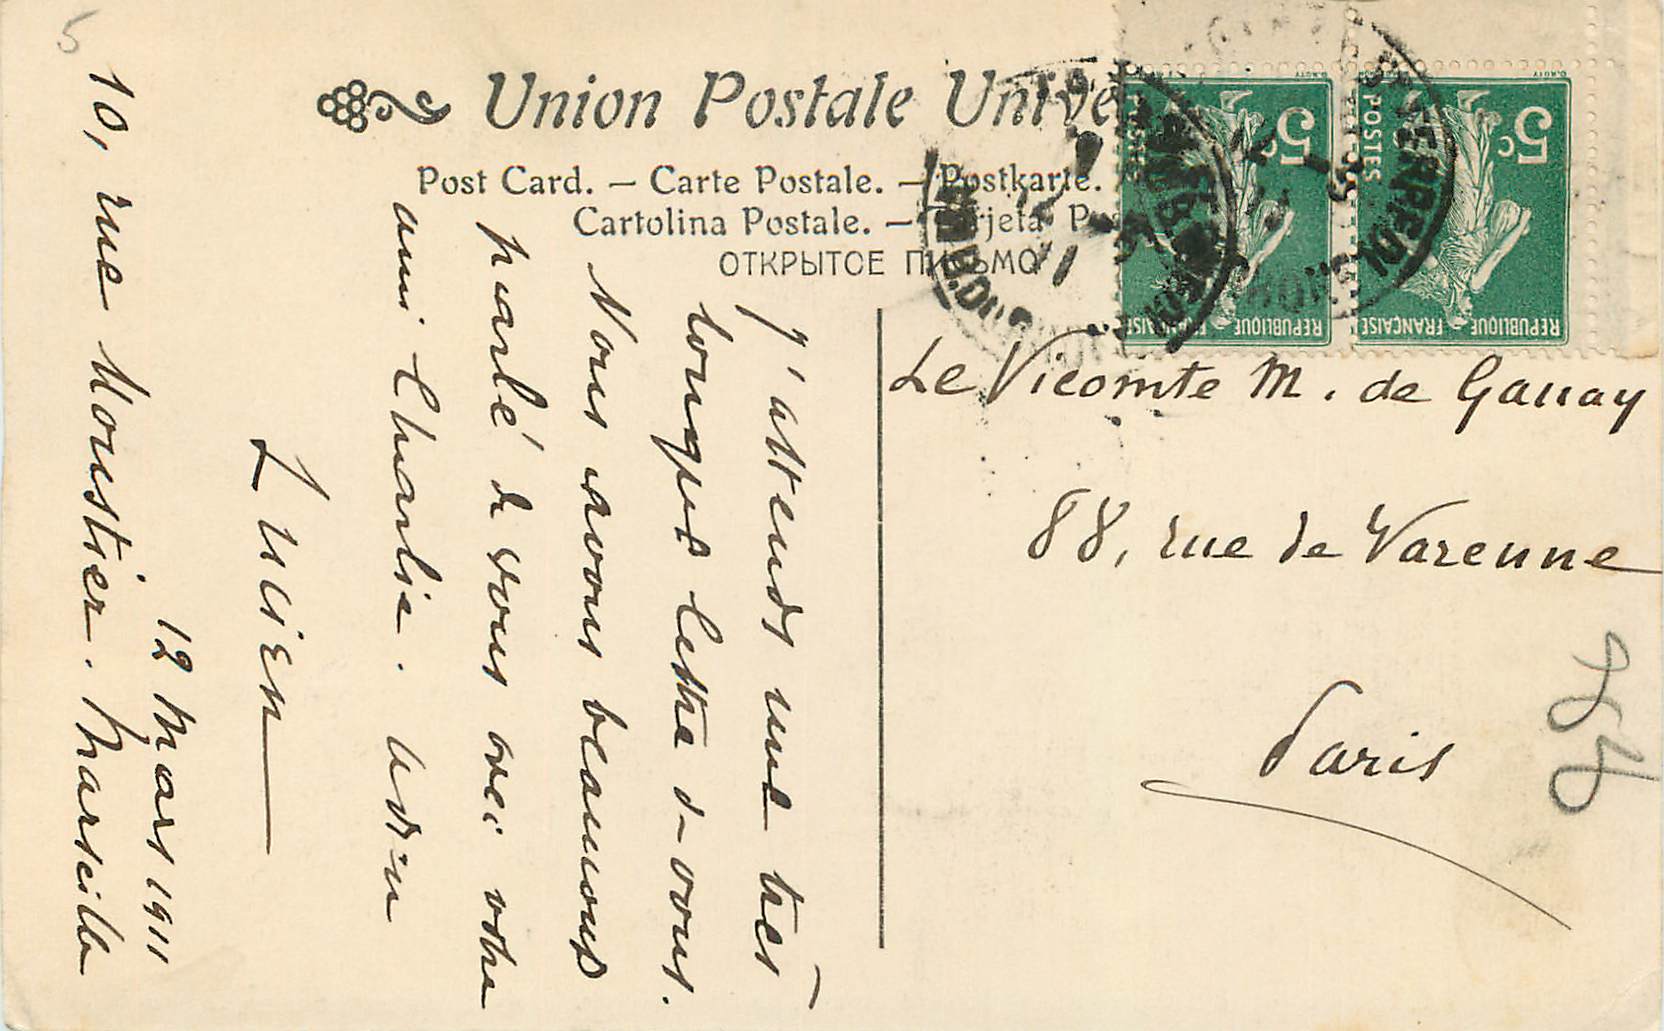 5
Union Postale Unive
Post Card. – Carte Postale. – Postkarte.
Cartolina Postale. – Tarjeta Pos
ОТКРЫТОЕ ПИСЬМО
5c
POSTES
REPUBLIQUE FRANÇAISE
5c
POSTES
REPUBLIQUE FRANÇAISE
Le Vicomte M. de Ganay
88, rue de Varenne
Paris
J'attends une très
longue lettre de vous.
Nous avons beaucoup
parlé de vous avec votre
ami Charlie. adieu
Lucien
12 Mars 1911
10, rue Moustier. Marseille